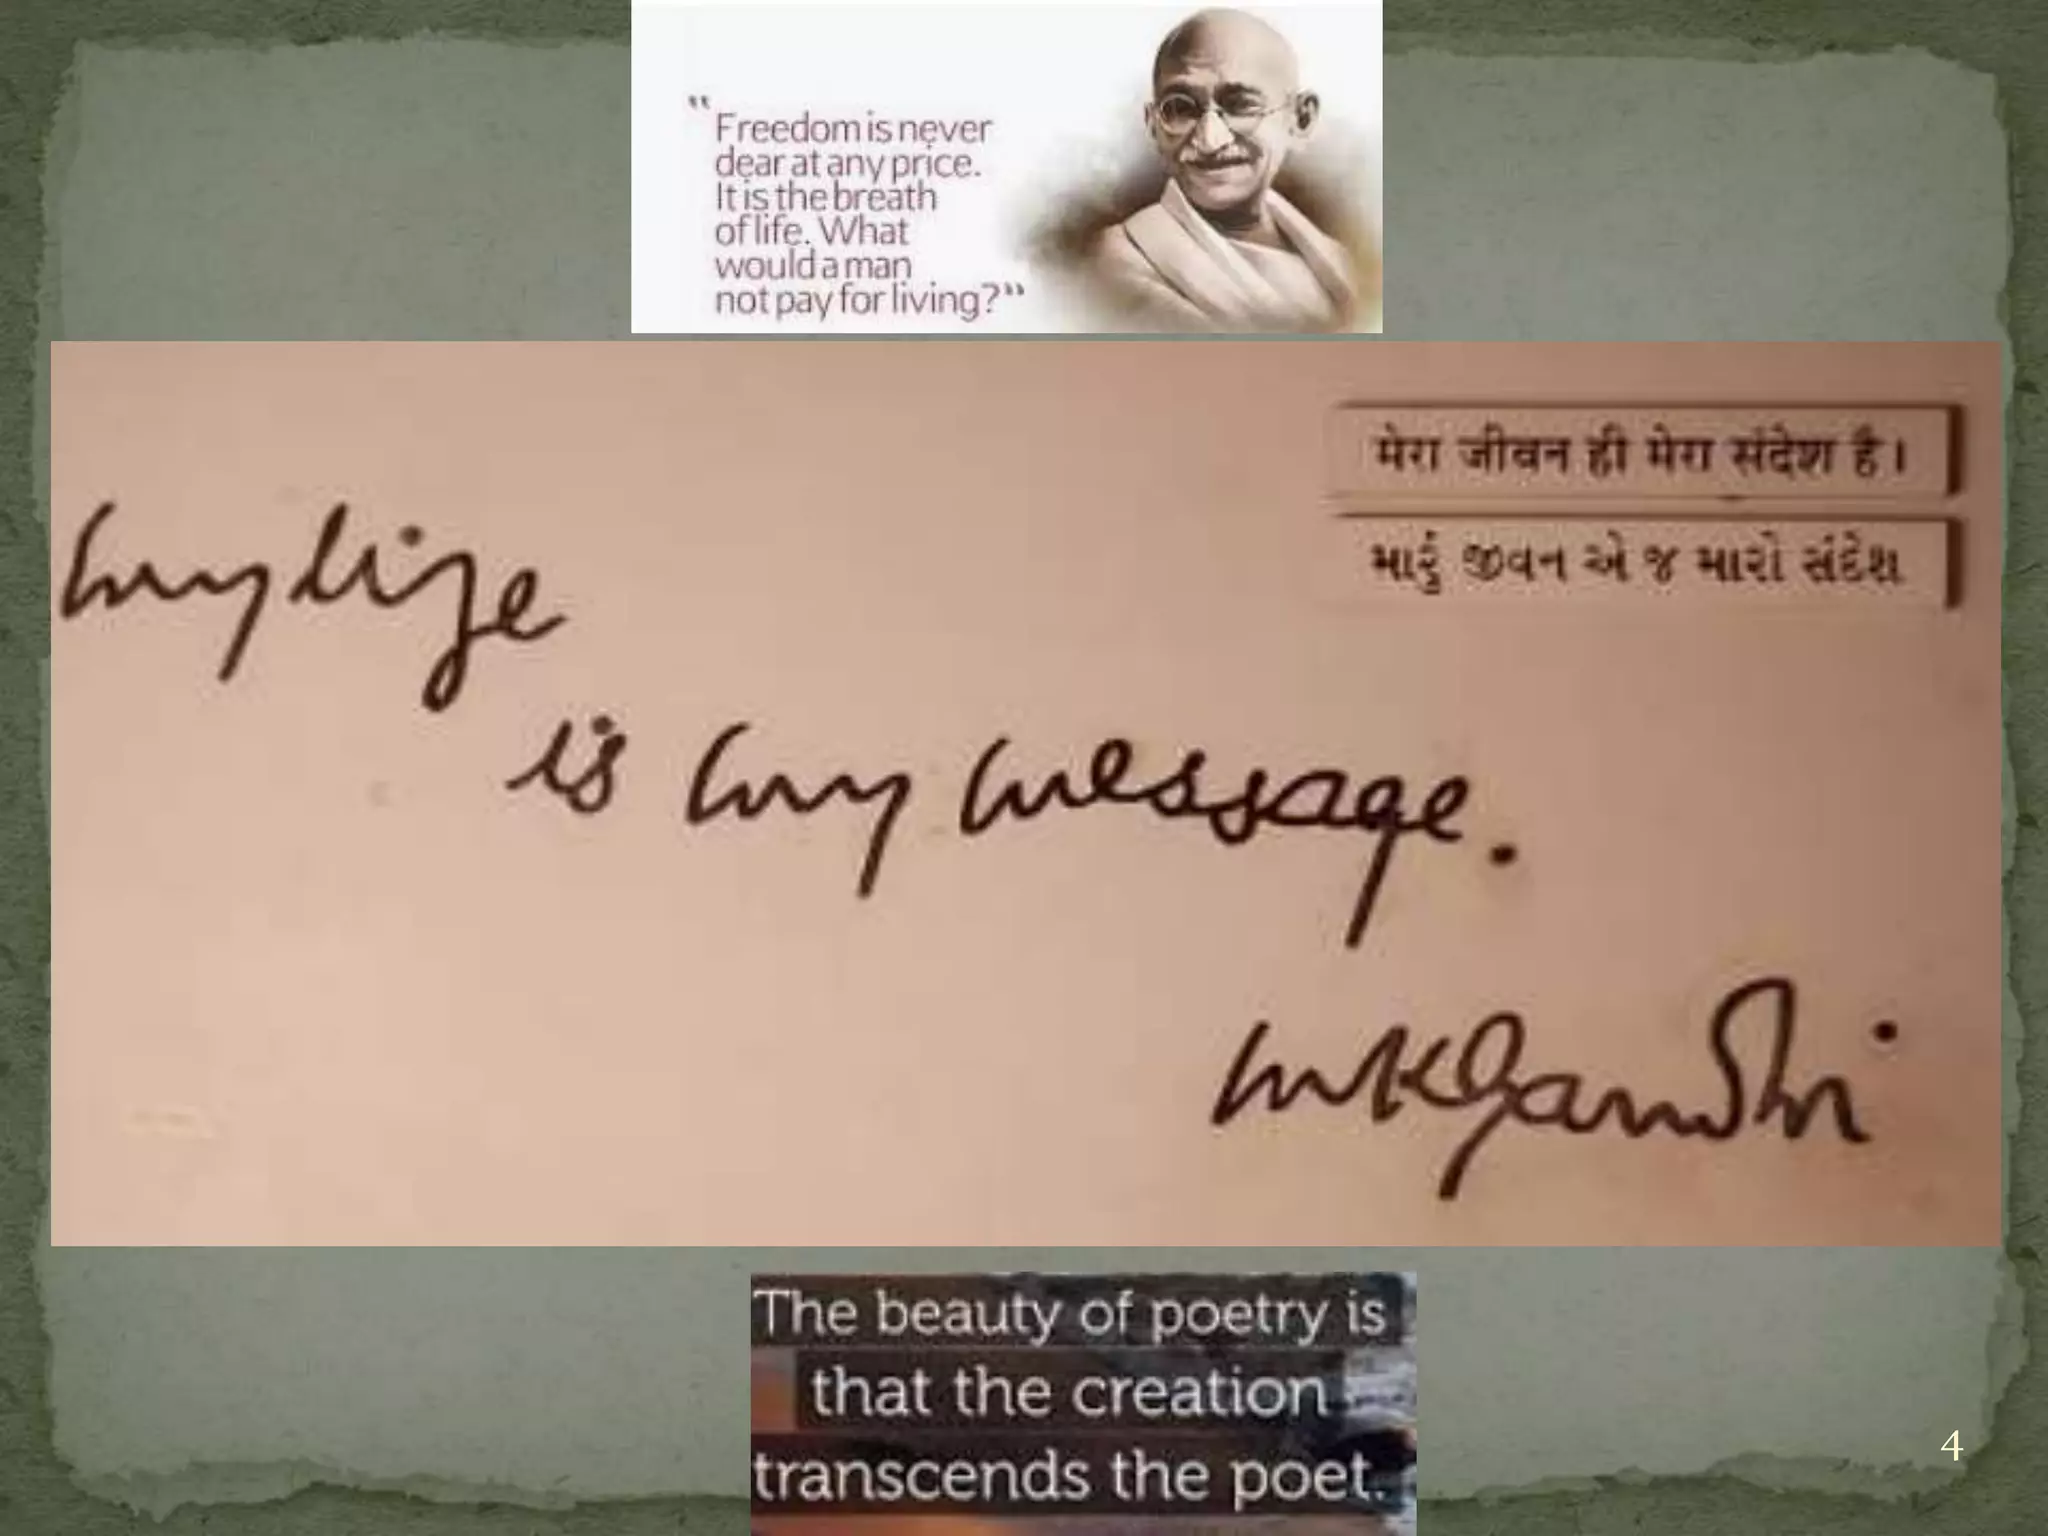 “Freedom is never
dear at any price.
It is the breath
of life. What
would a man
not pay for living?”
मेरा जीवन ही मेरा संदेश है।
મારું જીવન એ જ મારો સંદેશ
my life
is my message.
MKGandhi
The beauty of poetry is
that the creation
transcends the poet.
4